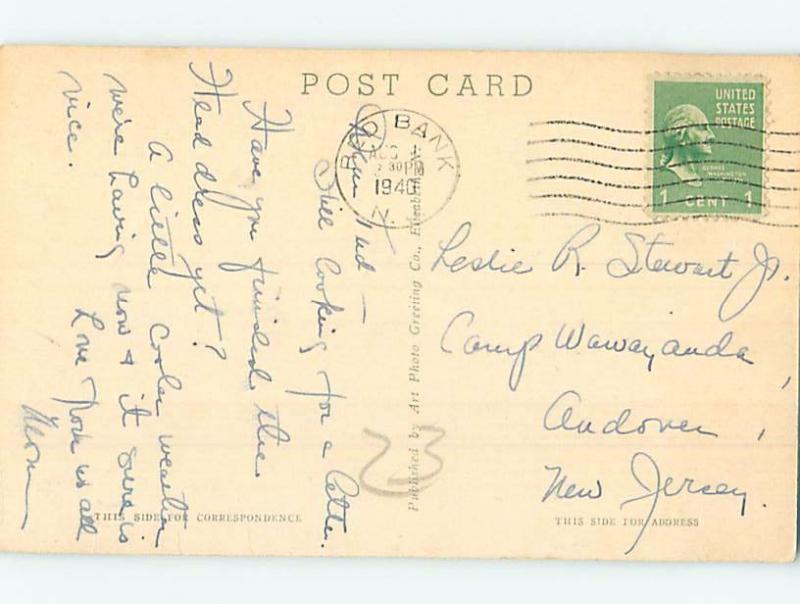 POST CARD
UNITED
STATES
POSTAGE
GEORGE
WASHINGTON
1 CENT 1
RED BANK
AUG
2 30 PM
1940
N.
Bud —
Still looking for a letter.
Have you finished the
Head dress yet?
A little cooler weather
we're having now & it sure is
nice.
Love from us all
Mom
Leslie R. Stewart Jr.
Camp Wawayanda,
Andover,
New Jersey.
23
Published by Art Photo Greeting Co., Elizabeth, N. J.
THIS SIDE FOR CORRESPONDENCE
THIS SIDE FOR ADDRESS